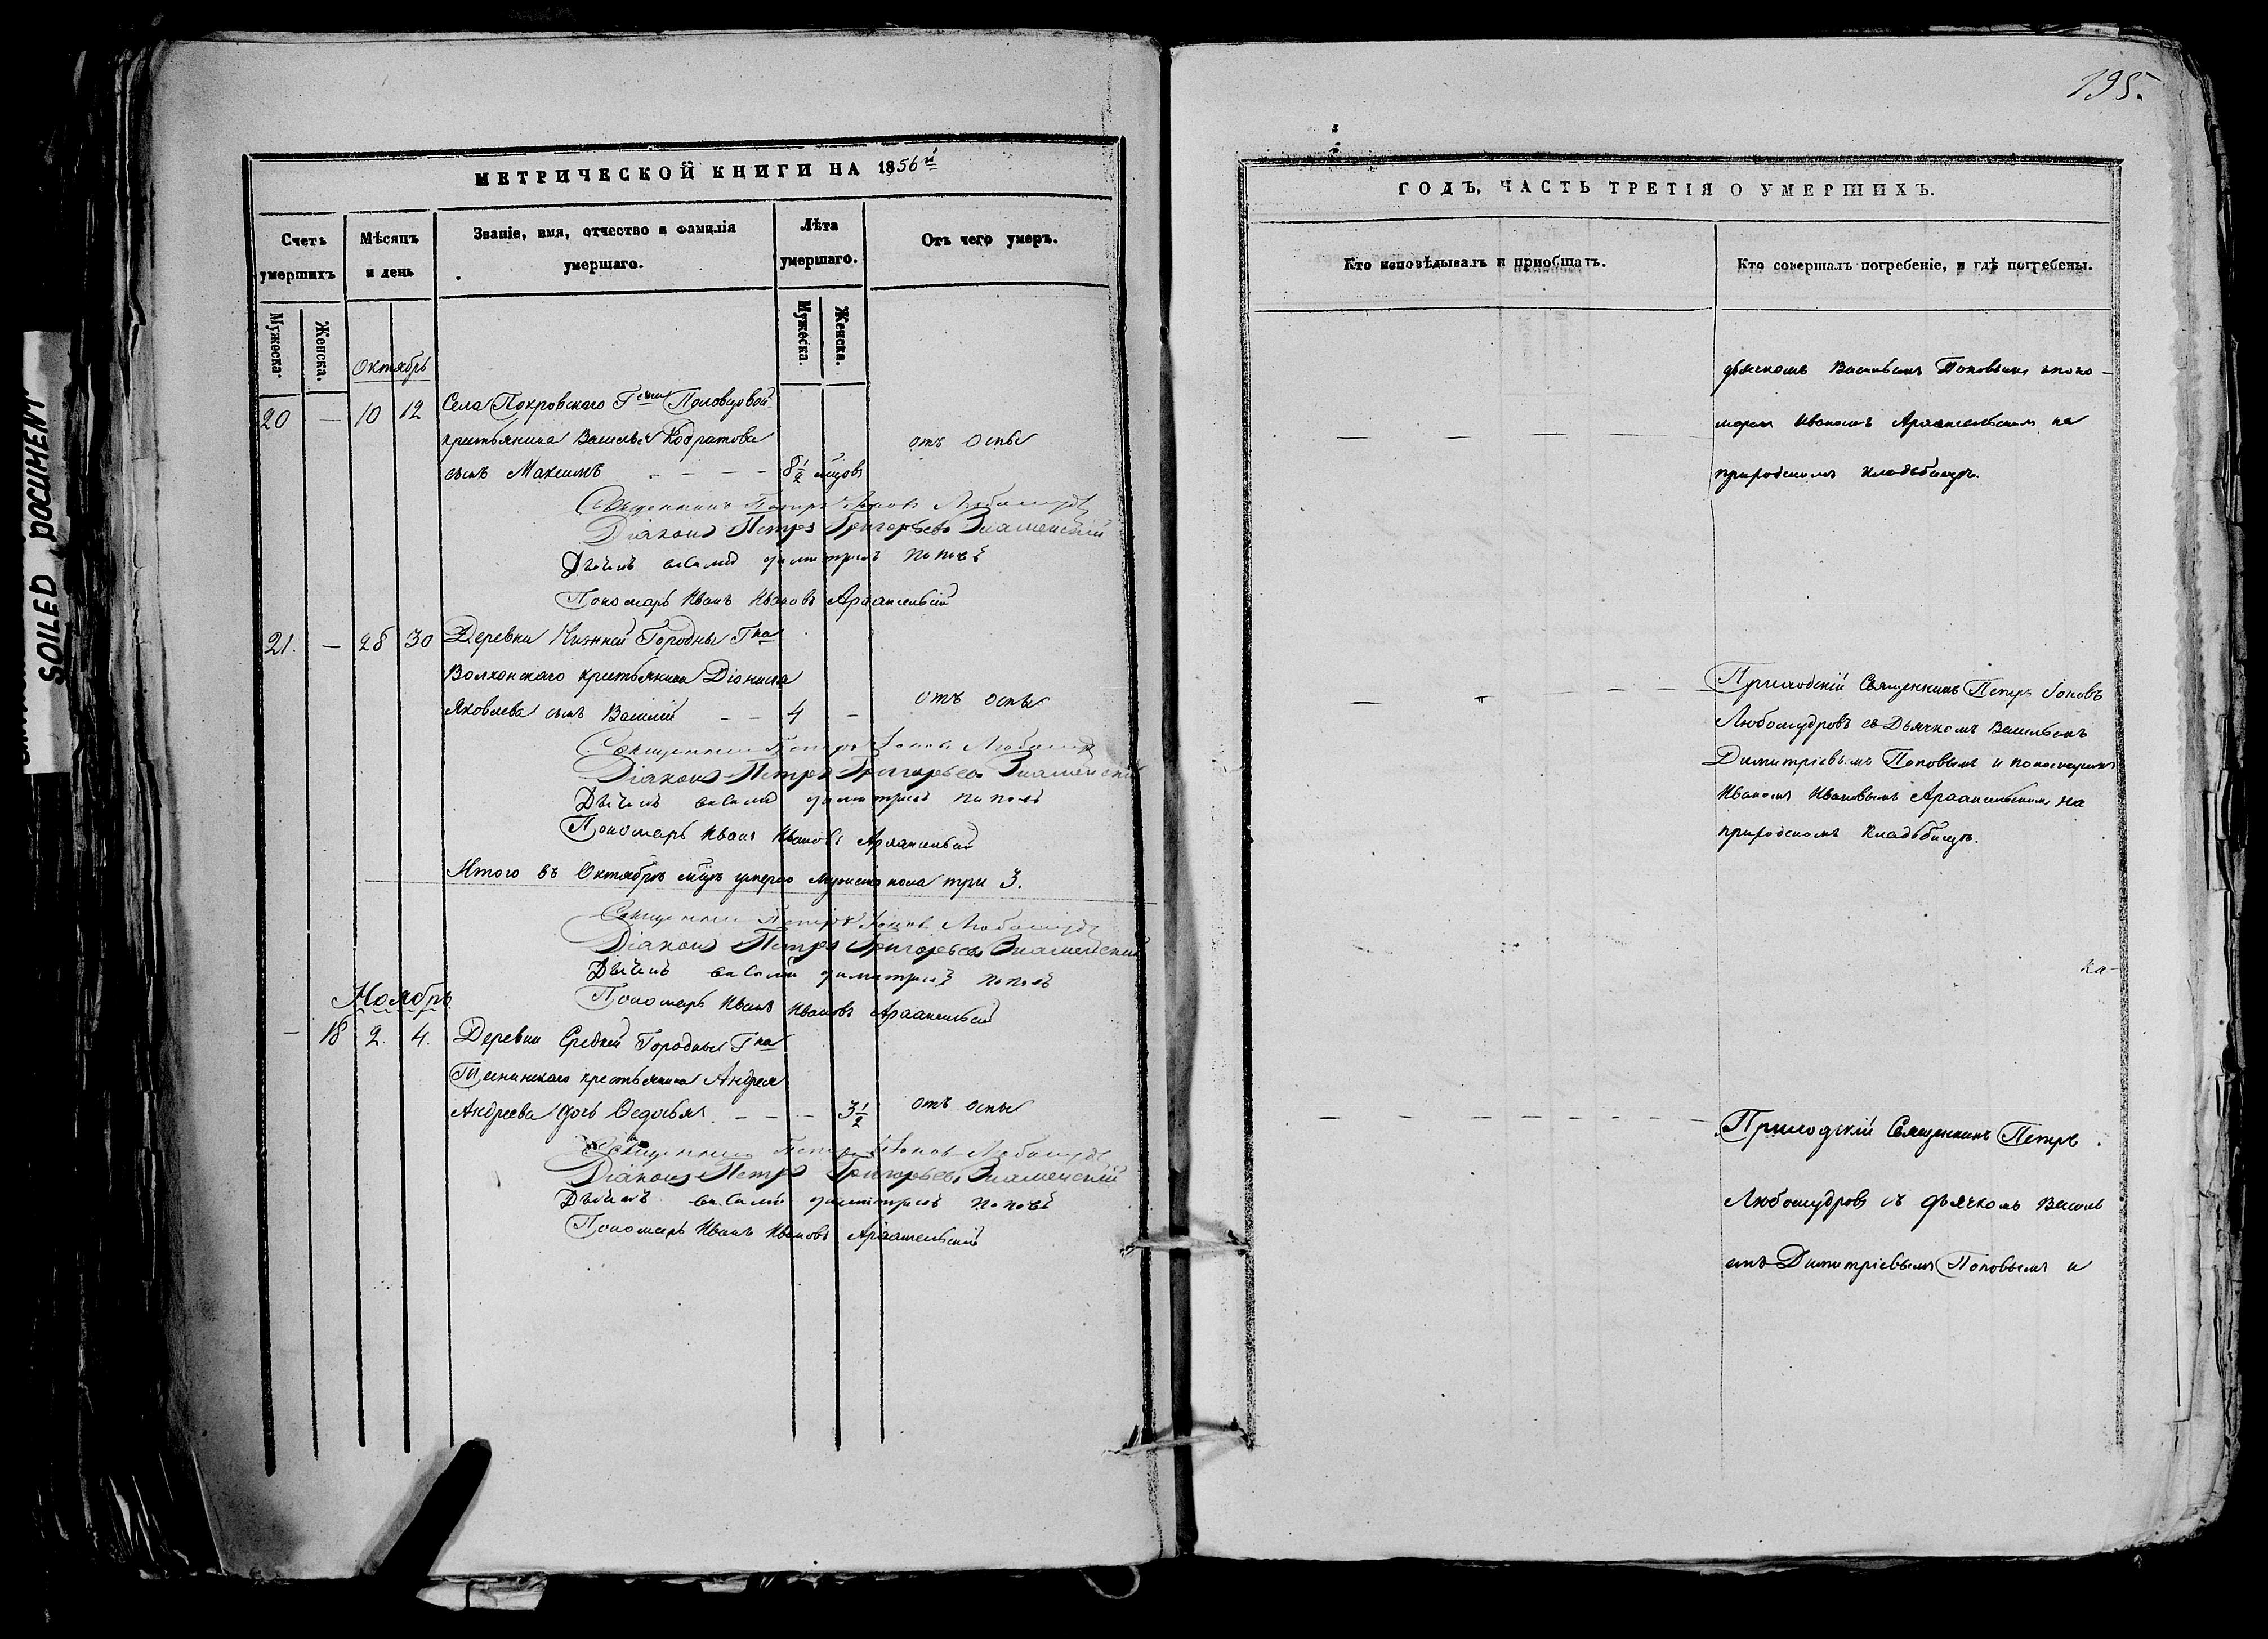 SOILED DOCUMENT
МЕТРИЧЕСКОЙ КНИГИ НА 1856й
Счетъ умершихъ
Мѣсяцъ и день
Званіе, имя, отчество и фамилія умершаго.
Лѣта умершаго.
Отъ чего умеръ.
Мужеска.
Женска.
Мужеска.
Женска.
Октябрь
20 — 10 12 Села Покровскаго Гжи Половцовой
крестьянина Василья Кодратова отъ оспы
сынъ Максимъ - - - - 8½ мцовъ
Священникъ Петръ Іоновъ Любомудровъ
Діаконъ Петръ Григорьевъ Знаменскій
Дьячекъ Василій Димитріевъ Поповъ
Пономарь Иванъ Ивановъ Архангельскій
21. — 28 30 Деревни Нижней Городны Гна
Волконскаго крестьянина Діонисія
Яковлева сынъ Василій - - 4 - отъ оспы
Священникъ Петръ Іоновъ Любомудровъ
Діаконъ Петръ Григорьевъ Знаменскій
Дьячекъ Василій Димитріевъ Поповъ
Пономарь Иванъ Ивановъ Архангельскій
Итого въ Октябрѣ мцѣ умерло мужеска пола три 3.
Священникъ Петръ Іоновъ Любомудровъ
Діаконъ Петръ Григорьевъ Знаменскій
Дьячекъ Василій Димитріевъ Поповъ
Пономарь Иванъ Ивановъ Архангельскій
Ноябрь
— 18 2. 4. Деревни Средней Городны Гна
крестьянина Андрея
Андреева дочь Ѳедосья. - - - 3½ отъ оспы
Священникъ Петръ Іоновъ Любомудровъ
Діаконъ Петръ Григорьевъ Знаменскій
Дьячекъ Василій Димитріевъ Поповъ
Пономарь Иванъ Ивановъ Архангельскій
195.
ГОДЪ, ЧАСТЬ ТРЕТІЯ О УМЕРШИХЪ.
Кто исповѣдывалъ и пріобщалъ.
Кто совершалъ погребеніе, и гдѣ погребены.
дьячкомъ Васильемъ Поповымъ и поно-
маремъ Иваномъ Архангельскимъ на
приходскомъ кладбищѣ.
Приходскій Священникъ Петръ Іоновъ
Любомудровъ съ Дьячкомъ Васильемъ
Димитріевымъ Поповымъ и пономаремъ
Иваномъ Ивановымъ Архангельскимъ на
приходскомъ кладбищѣ.
На-
Приходскій Священникъ Петръ
Любомудровъ съ дьячкомъ Василь
емъ Димитріевымъ Поповымъ и